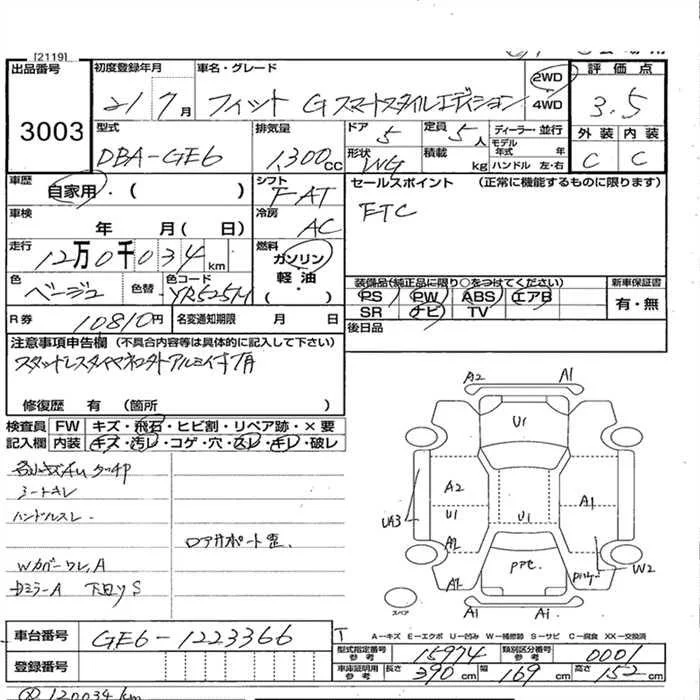 [2119]
出品番号 初度登録年月 車名・グレード 2WD 4WD 評価点
3003 21 7月 フィット G スマートスタイルエディション 3.5
型式 排気量 ドア 定員 ディーラー・並行 外装 内装
DBA-GE6 1,300cc 5 5人 モデル年式 年 C C
形状 WG 積載 kg ハンドル 左・右
車歴 自家用・( ) シフト FAT セールスポイント (正常に機能するものに限ります)
車検 年 月( 日) 冷房 AC ETC
走行 12万0千034km 燃料 ガソリン 軽油・( )
色 ベージュ 色替 色コード YR525M
装備品(純正品に限り○をつけてください) 新車保証書
PS PW ABS エアB 有・無
SR ナビ TV
R券 10810円 名変通知期限 月 日 後日品
注意事項申告欄 (不具合内容等は具体的に記入して下さい)
修復歴 有 (箇所 )
検査員 FW キズ・飛石・ヒビ割・リペア跡・×要
記入欄 内装 キズ・汚レ・コゲ・穴・スレ・キレ・破レ
シートキレ
ハンドルスレ
Wカバーワレ,A
A2 A1
U1
A2 A1
UA3 U1 U1
A2 W2
A2
A1 A1
スペア
車台番号 GE6-1223366
A-キズ E-エクボ U-凹み W-補修跡 S-サビ C-腐食 XX-交換済
型式指定番号 参考 15974 類別区分番号 参考 0001
登録番号 車庫証明用 参考 長さ 390cm 幅 169cm 高さ 152cm
120034km